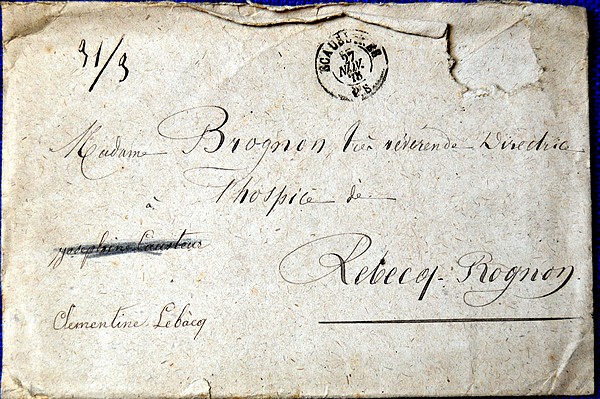 31/3
ECAUSSINES
27
NOV.
75
P.S.
Madame Brognon très révérende Directrice
à l'hospice de
Rebecq-Rognon.
Josephine
Clementine Lebacq